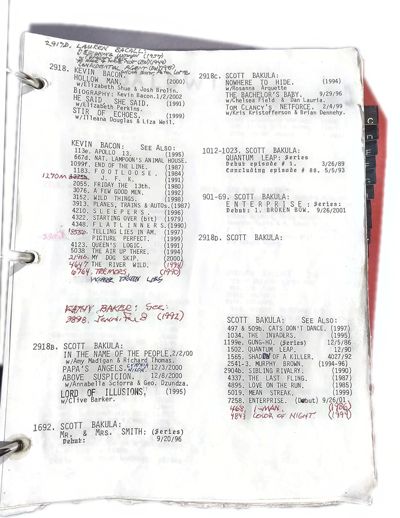 2917D. LAUREN BACALL:
DESIGNING WOMAN (1957)
CONFIDENTIAL AGENT
2918. KEVIN BACON:
HOLLOW MAN. (2000)
w/Elizabeth Shue & Josh Brolin.
BIOGRAPHY: Kevin Bacon.1/2/2002
HE SAID, SHE SAID. (1991)
w/Elizabeth Perkins.
STIR OF ECHOES. (1999)
w/Illeana Douglas & Liza Weil.
KEVIN BACON: See Also:
113e. APOLLO 13. (1995)
667d. NAT. LAMPOON'S ANIMAL HOUSE.
1099f. END OF THE LINE. (1987)
1183. F O O T L O O S E. (1984)
1270M J. F. K. (1991)
2055. FRIDAY THE 13th. (1980)
3076. A FEW GOOD MEN. (1992)
3152. WILD THINGS. (1998)
3913. PLANES, TRAINS & AUTOs.(1987)
4210. S L E E P E R S. (1996)
4322. STARTING OVER (bit) (1979)
4348. F L A T L I N E R S.(1990)
TELLING LIES IN AM. (1997)
PICTURE PERFECT. (1997)
4123. QUEEN'S LOGIC. (1991)
5038. THE AIR UP THERE. (1994)
MY DOG SKIP. (2000)
4647. THE RIVER WILD. (1994)
6764. TREMORS (1990)
KATHY BAKER: SEE:
2898. Jennifer 8 (1992)
2918B. SCOTT BAKULA:
IN THE NAME OF THE PEOPLE.2/2/00
w/Amy Madigan & Richard Thomas.
PAPA'S ANGELS. 12/3/2000
ABOVE SUSPICION. 12/8/2000
w/Annabella Sciorra & Geo. Dzundza.
LORD OF ILLUSIONS, (1995)
w/Clive Barker.
1692. SCOTT BAKULA:
MR. & MRS. SMITH: (Series)
Debut: 9/20/96
2918c. SCOTT BAKULA:
NOWHERE TO HIDE. (1994)
w/Rosanna Arquette
THE BACHELOR'S BABY. 9/29/96
w/Chelsea Field & Dan Lauria.
TOM CLANCY'S NETFORCE. 2/4/99
w/Kris Kristofferson & Brian Dennehy.
1012-1023. SCOTT BAKULA:
QUANTUM LEAP: Series
Debut episode # 1. 3/26/89
Concluding episode # 88, 5/5/93
901-69. SCOTT BAKULA:
E N T E R P R I S E, Series
Debut: 1. BROKEN BOW. 9/26/2001
2918D. SCOTT BAKULA:
SCOTT BAKULA: See Also:
497 & 509b. CATS DON'T DANCE. (1997)
1034. THE INVADERS. (1995)
1199e. GUNG-HO. (Series) 12/5/86
1502. QUANTUM LEAP. 12/90
1565. SHADOW OF A KILLER. 4027/92
2541-3. MURPHY BROWN. (1994-96)
2904b. SIBLING RIVALRY. (1990)
4337. THE LAST FLING. (1987)
4895. LOVE ON THE RUN. (1985)
5019. MEAN STREAK. (1999)
7258. ENTERPRISE. (Debut) 9/26/01
468. I-MAN. (1986)
4847 COLOR OF NIGHT. (1994)